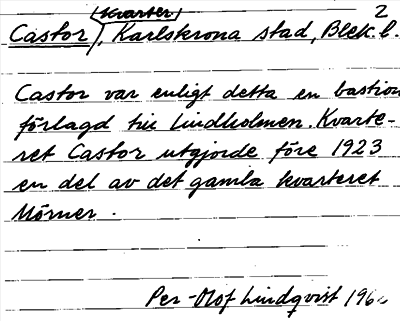 kvarter 2
Castor, Karlskrona stad, Blek. l.
Castor var enligt detta en bastion
förlagd till Lindholmen. Kvarte-
ret Castor utgjorde före 1923
en del av det gamla kvarteret
Mörner.
Per-Olof Lindqvist